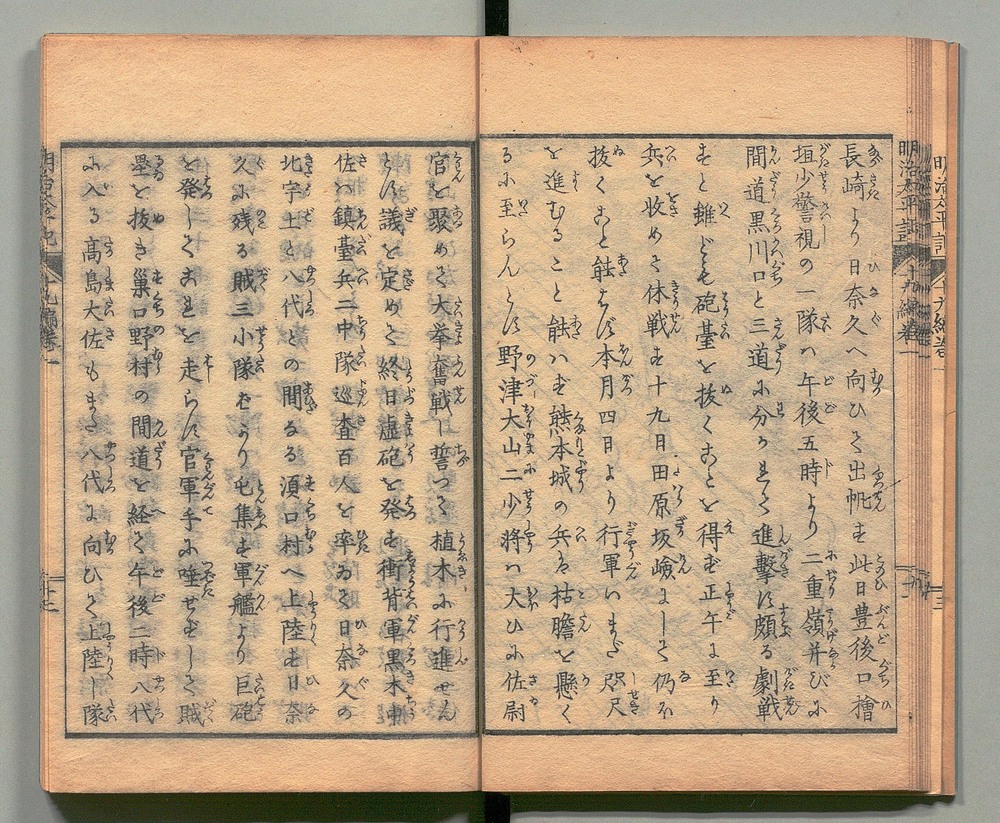 明治太平記 十九編巻一
長崎より日奈久へ向ひて出帆す此日豊後口檜
垣少警視の一隊ハ午後五時より二重嶺并びに
間道黒川口と三道に分かれて進撃す頗る劇戦
すと雖ども砲臺を抜くことを得ず正午に至り
兵を收めて休戦す十九日田原坂嶮にして仍ほ
抜くこと能はず本月四日より行軍いまだ咫尺
を進むること能ハず熊本城の兵る枯膽を懸く
るに至らんとす野津大山二少将ハ大ひに佐尉
官を聚めて大挙奮戦し誓つて植木に行進せん
とす議を定めて終日虚砲を発す衝背軍黒木中
佐ハ鎮臺兵二中隊巡査百人を率ゐて日奈久の
北宇土と八代との間なる須口村へ上陸す日奈
久に残る賊三小隊ばかり屯集す軍艦より巨砲
を発してこれを走らす官軍手に唾せずして賊
壘を抜き巣口野村の間道を経て午後二時八代
に入る高島大佐もまた八代に向ひて上陸し隊